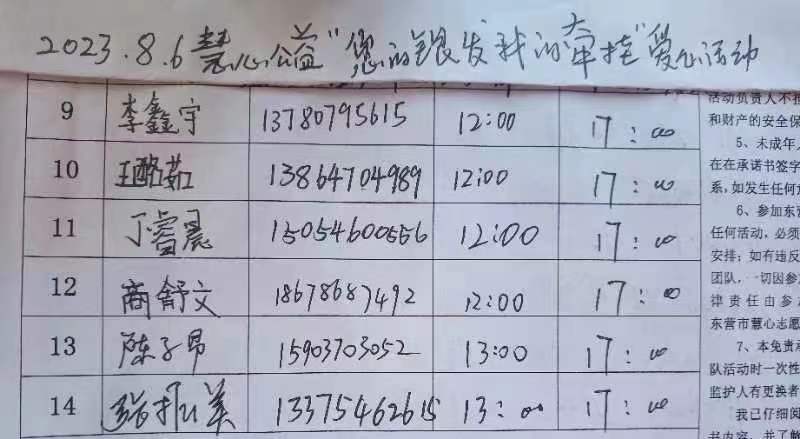 2023.8.6慧心公益“您的银发我的牵挂”爱心活动
9 李鑫宇 13780795615 12:00 17:00
10 王酩茹 13864704989 12:00 17:00
11 丁睿晨 15054600556 12:00 17:00
12 商舒文 18678687492 12:00 17:00
13 陈子昂 15903703052 13:00 17:00
14 张振美 13375462615 13:00 17:00
活动负责人不
和财产的安全保
5、未成年人
在在承诺书签字
系,如发生任何
6、参加东
任何活动,必须
安排;如有违反
团队,一切因参
律责任由参
东营市慧心志愿
7、本免责
队活动时一次性
监护人有更换者
我已仔细阅
书内容,并了解